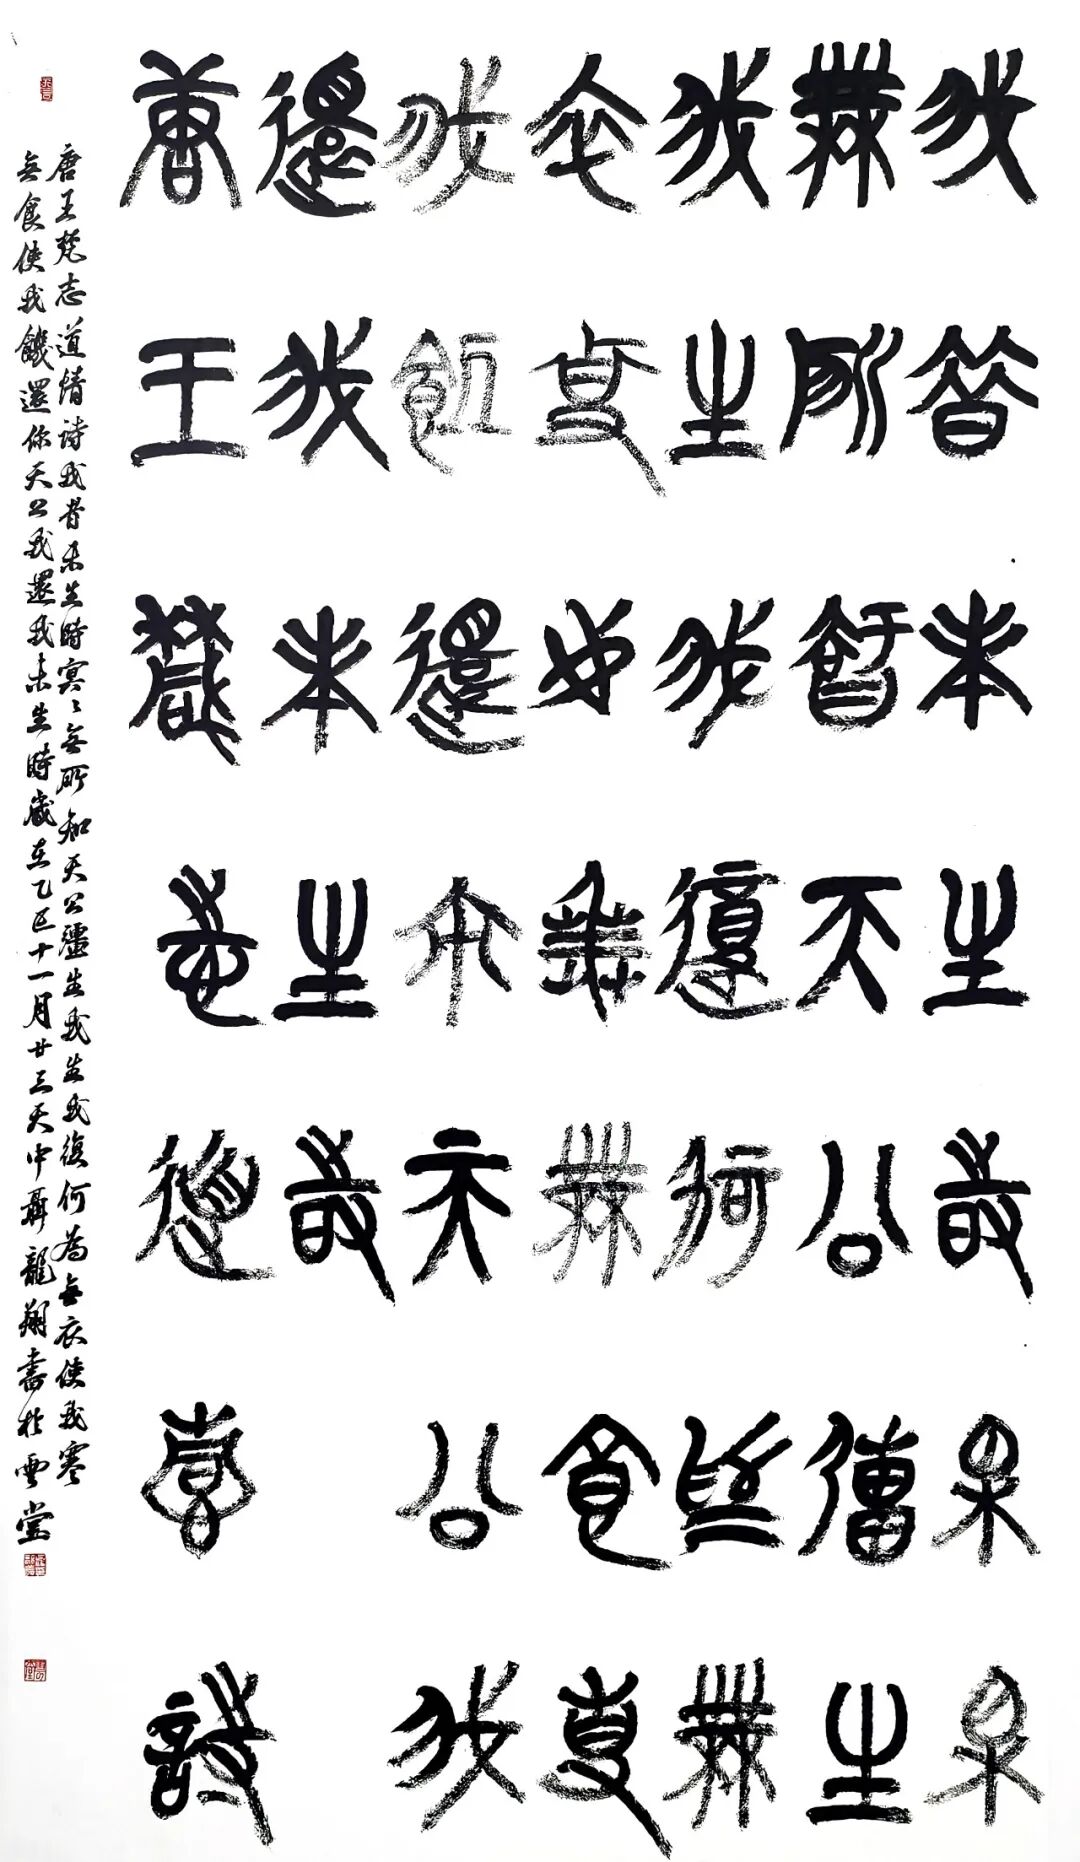 我昔未生時冥冥
無所智天公彊生
我生我復何為無
衣使我寒無食使
我飢還尔天公我
還我未生時
唐王梵志道情詩
唐王梵志道情詩我昔未生時冥〻無所知天公彊生我生我復何為無衣使我寒
無食使我饑還你天公我還我未生時歲在乙巳十一月廿三天中聶龍翔書於雲堂